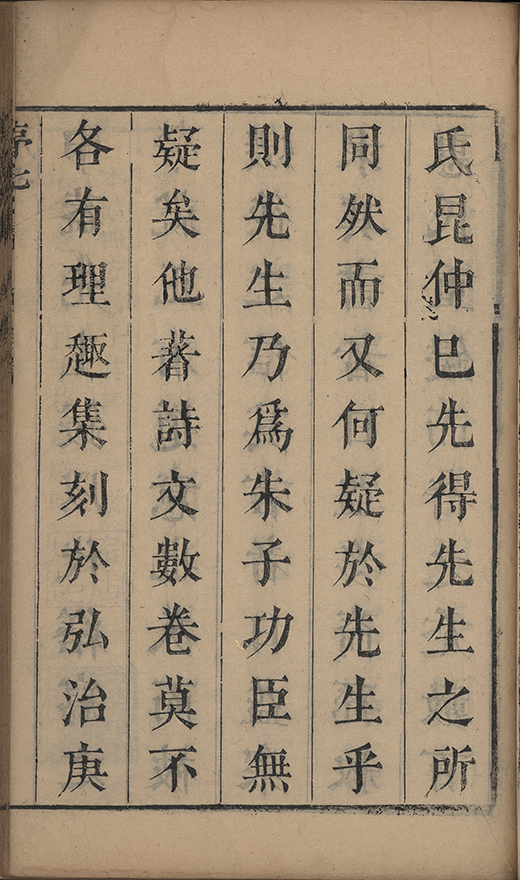 氏昆仲已先得先生之所
同然而又何疑於先生乎
則先生乃爲朱子功臣無
疑矣他著詩文數卷莫不
各有理趣集刻於弘治庚
序七